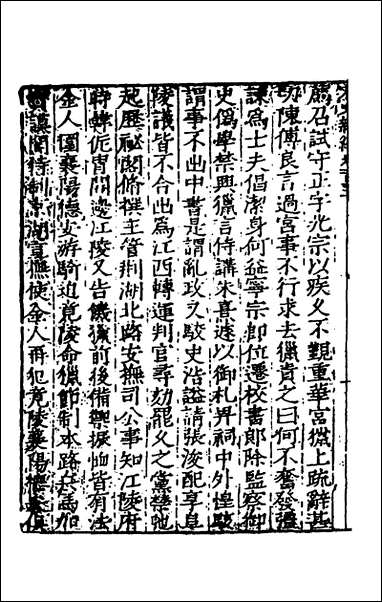 薦召試守正字光宗以疾久不覲重華宮獵上疏辭甚
切陳傅良言過宮事不行求去獵責之曰何不奮發彊
諫為士夫倡潔身何益寧宗即位遷校書郎除監察御
史偽學禁興獵言侍講朱熹遽以御札畀祠中外惶駭
謂事不出中書是謂亂政又駁史浩諡請張浚配享阜
陵議皆不合出為江西轉運判官尋劾罷久之黨禁弛
起歷祕閣修撰主管荊湖北路安撫司公事知江陵府
時韓侂冑開邊江陵又告饑獵前後備禦振恤皆有法
金人圍襄陽德安游騎迫竟陵命獵節制本路兵馬加
謨閣待制京湖宣撫使金人再犯竟陵襄陽